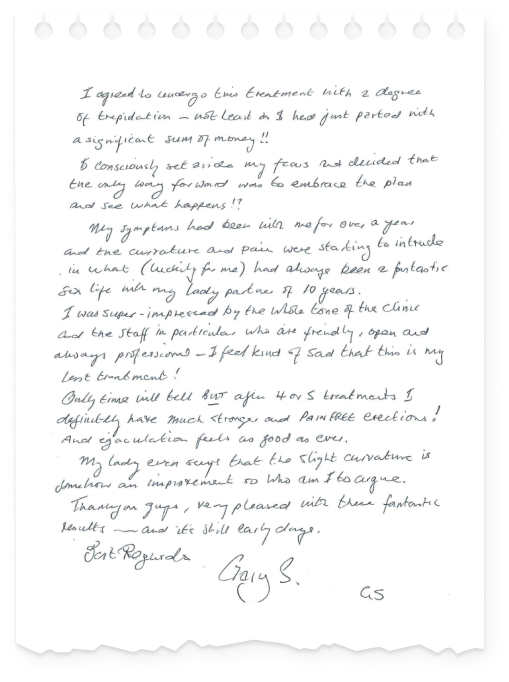 I agreed to undergo this treatment with a degree
of trepidation – not least as I had just parted with
a significant sum of money!!
I consciously set aside my fears and decided that
the only way forward was to embrace the plan
and see what happens!?
My symptoms had been with me for over a year
and the curvature and pain were starting to intrude
in what (luckily for me) had always been a fantastic
sex life with my lady partner of 10 years.
I was super-impressed by the whole tone of the clinic
and the staff in particular who are friendly, open and
always professional – I feel kind of sad that this is my
last treatment!
Only time will tell BUT after 4 or 5 treatments I
definitely have much stronger and PAIN FREE erections!
And ejaculation feels as good as ever.
My lady even says that the slight curvature is
somehow an improvement so who am I to argue.
Thankyou guys, very pleased with these fantastic
results — and it's still early days.
Best Regards
Gary S.
GS